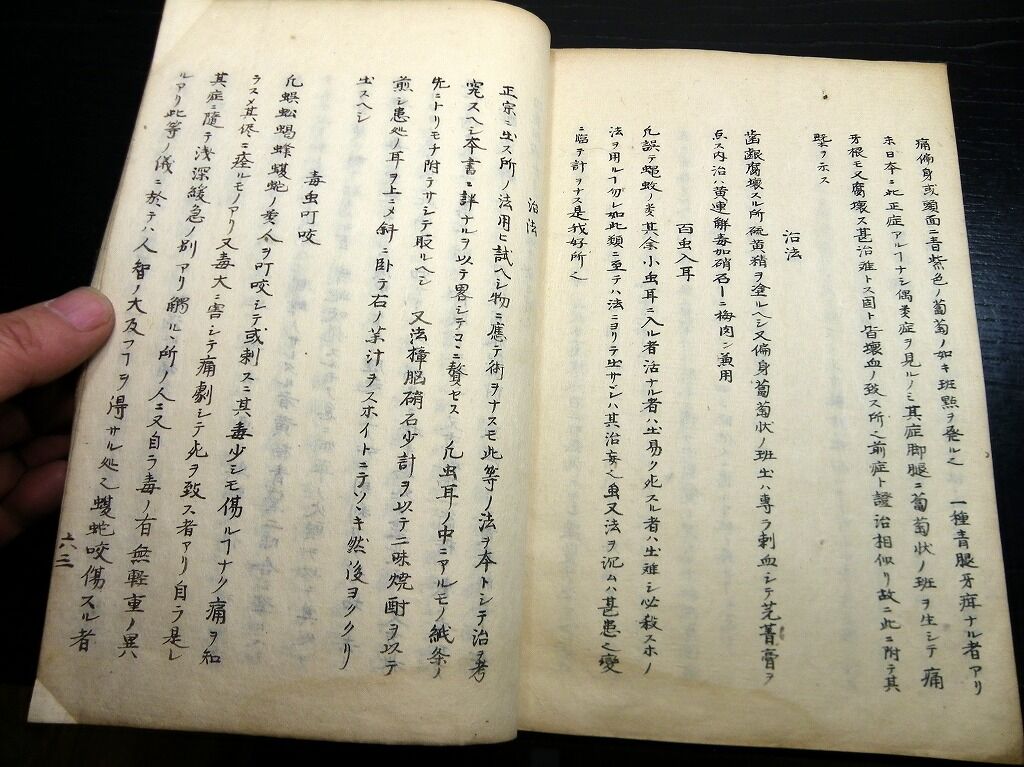 痛偏身或頭面ニ青紫色ノ葡萄ノ如キ班點ヲ發ル之 一種青腿牙疳ナル者アリ
未日本ニ此正症アルヿナシ偶类症ヲ見ルノミ其症脚腿ニ葡萄状ノ班ヲ生シテ痛
牙根モ又腐壊ス甚治难トス固ト皆壊血ノ致ス所之前症ト證治相似リ故ニ此ニ附テ其
槩ヲ示ス
治法
歯齦腐壊スル所硫黄精ヲ塗ルヘシ又偏身葡萄状ノ班出ハ専ラ刺血シテ芫菁膏ヲ
点ス内治ハ黄連解毒加硝石一ニ梅肉ン兼用
百虫入耳
凡誤テ蝿蚊ノ类其余小虫耳ニ入ル者活ナル者ハ出易ク死スル者ハ出难シ必殺スホノ
法ヲ用ルヿ勿レ如此類ニ至テハ法ニヨリテ生サンハ其治妄之虫又法ヲ泥ムハ甚患之变
ニ臨テ計ヲナス是我好所之
治法
正宗ニ出ス所ノ法用ヒ試ヘシ物ニ應テ術ヲナスモ此等ノ法ヲ本トシテ治ヲ考
究スヘシ本書ニ詳ナルヲ以テ畧シテコニ贅セス 凡虫耳ノ中ニアルモノ紙条ノ
先ニトリモナ附テサシテ取ルヘシ 又法樟脳硝石少計ヲ以テ二味焼酎ヲ以テ
煎シ患処ノ耳ヲ上ニメ斜ニ卧テ右ノ茶汁ヲスホイトニテソヽキ然後ヨクフリ
出スヘシ
毒虫叮咬
凡蜈蚣蝎蜂蝮蛇ノ类人ヲ叮咬シテ或刺スニ其毒少シモ傷ルヿナク痛ヲ知
ラスメ其侭ニ痊ルモノアリ又毒大ニ害シテ痛劇シテ死ヲ致ス者アリ自ラ是レ
其症ニ隨テ浅深緩急ノ別アリ觸ルヽ所ノ人ニ又自ラ毒ノ有無軽重ノ異
ルアリ此等ノ儀ニ於テハ人智ノ大及フヿヲ得サル処之蝮蛇咬傷スル者
六三